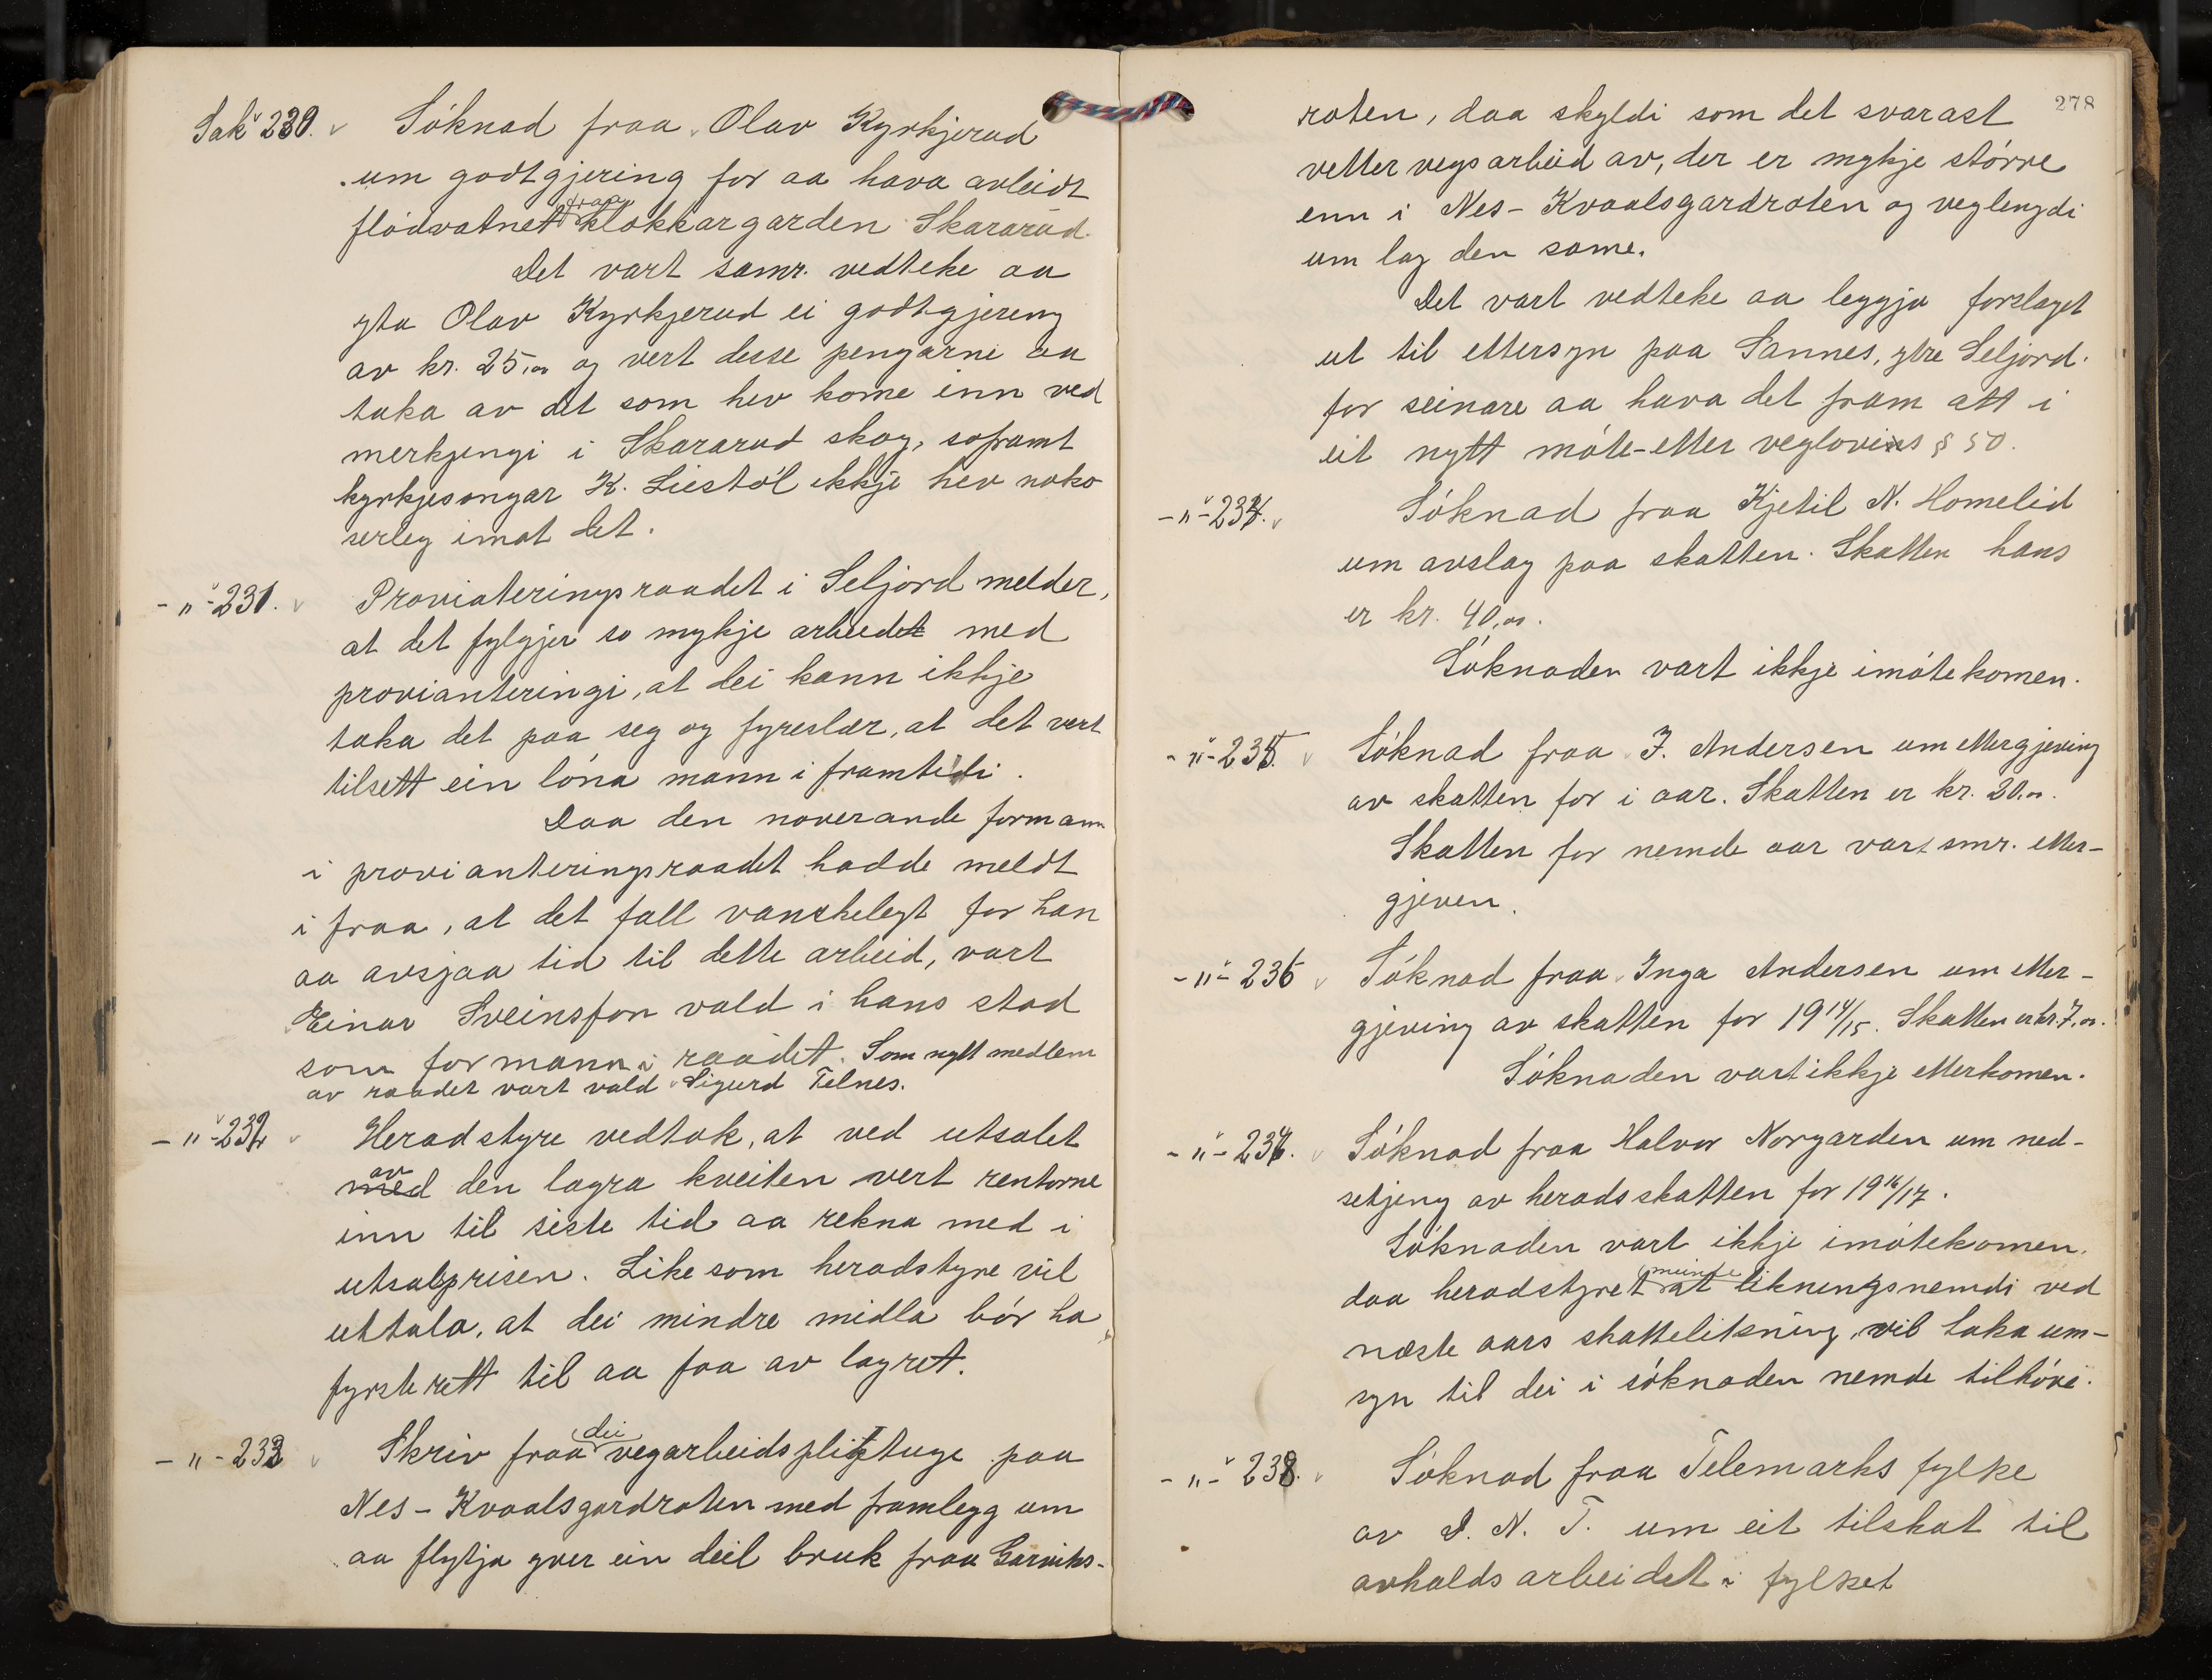 Sak 230. Söknad fraa Olav Kyrkjerud
um godtgjering for aa hava avleidt
flödvatnet fraa klokkargarden Skararud.
Det vart samr. vedteke aa
yta Olav Kyrkjerud ei godtgjereng
av kr. 25,00 og vert desse pengarne aa
taka av det som hev kome inn ved
merkjingi i Skararud skog, soframt
kyrkjesongar K. Liestöl ikkje hev noko
serleg imot det.
-"- 231. Proviateringsraadet i Seljord melder,
at det fylgjer so mykje arbeidet med
provianteringi, at dei kann ikkje
taka det paa seg og fyreslær, at det vert
tilsett ein löna mann i framtidi.
Daa den noverande formann
i provianteringsraadet hadde meldt
i fraa, at det fall vanskelegt for han
aa avsjaa tid til dette arbeid, vart
Einar Sveinsson vald i hans stad
som formann i raadet. Som nytt medlem
av raadet vart vald Sigurd Telnes.
-"- 232 Heradstyre vedtok, at ved utsalet
med av den lagra kveiten vert rentorne
inn til siste tid aa rekna med i
utsalsprisen. Like som heradstyre vil
uttala, at dei mindre midla bör ha
fyrste rett til aa faa av lagret.
-"- 233 Skriv fraa dei vegarbeidspligtuge paa
Nes-Kvaalsgardroten med framlegg um
aa flytja yver ein deil bruk fraa Garviks-
278
roten, daa skyldi som det svarast
vetter vegsarbeid av, der er mykje störve
enn i Nes-Kvaalsgardroten og veglengdi
um lag den same.
Det vart vedteke aa leggja forslaget
ut til ettersyn paa Sannes, ytre Seljord.
for seinare aa hava det fram att i
eit nytt möte etter veglovins § 50.
-"- 234. Söknad fraa Kjetil N. Homelid
um avslag paa skatten. Skatten hans
er kr. 40,00.
Söknaden vart ikkje imötekomen.
-"- 235. Söknad fraa J. Andersen um ettergjeving
av skatten for i aar. Skatten er kr. 30.00.
Skatten for nemde aar vart smr. etter-
gjeven.
-"- 236 Söknad fraa Inga Andersen um etter-
gjeving av skatten for 1914/15. Skatten er kr. 7,00.
Söknaden vart ikkje etterkomen.
-"- 237. Söknad fraa Halvor Norgarden um ned-
setjing av heradsskatten for 1916/17.
Söknaden vart ikkje imötekomen.
daa heradstyret meinde at likningsnemdi ved
næste aars skattelikning, vil taka um-
syn til dei i söknaden nemde tilhöve.
-"- 238. Söknad fraa Telemarks fylke
av D. N. T. um eit tilskot til
avholdsarbeidet i fylket